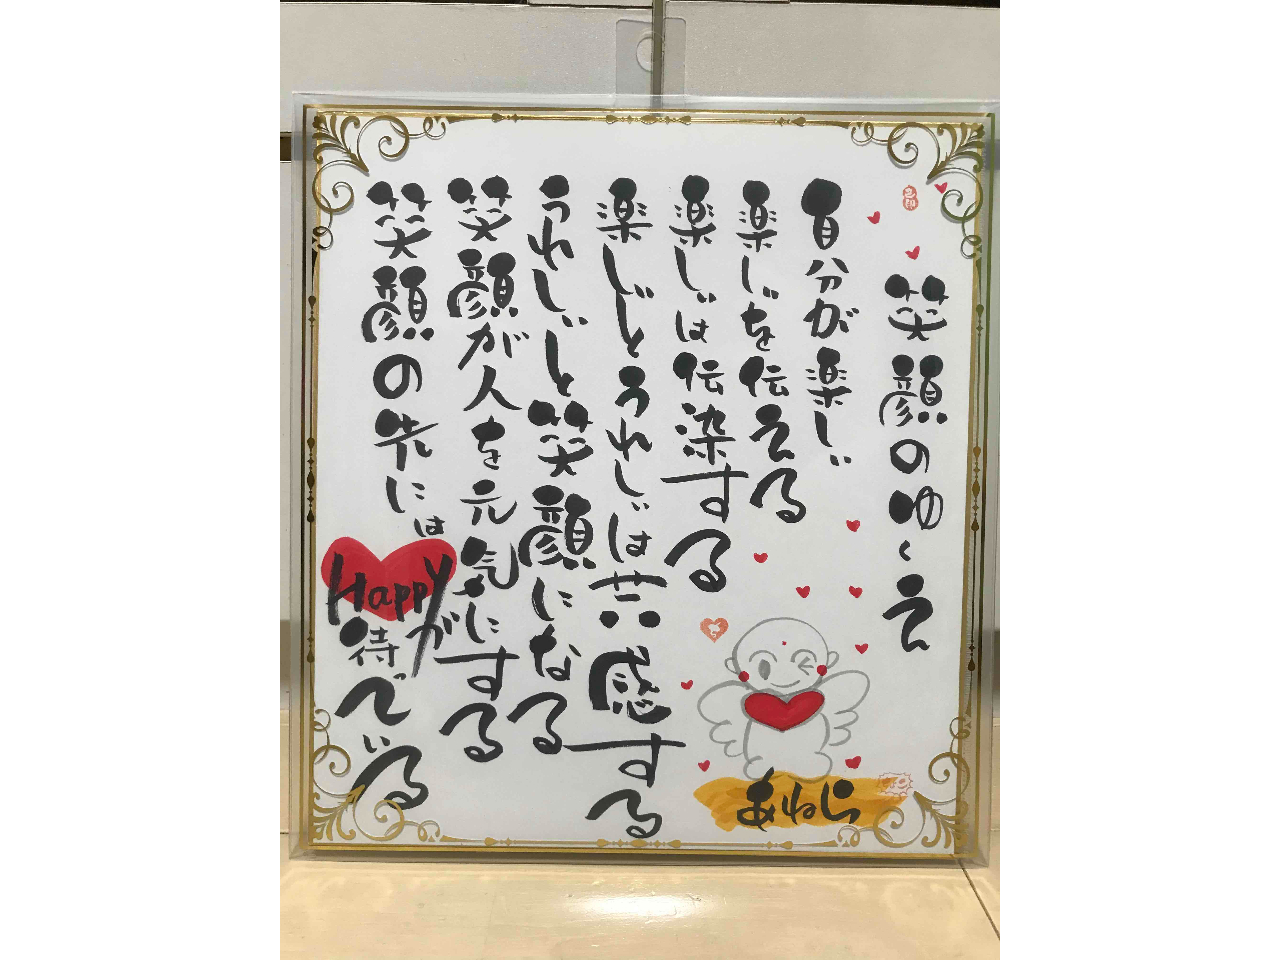 笑顔のゆくえ
自分が楽しい
楽しいを伝える
楽しいは伝染する
楽しいとうれしいは共感する
うれしいと笑顔になる
笑顔が人を元気にする
笑顔の先には
Happyが
待っている
あねら